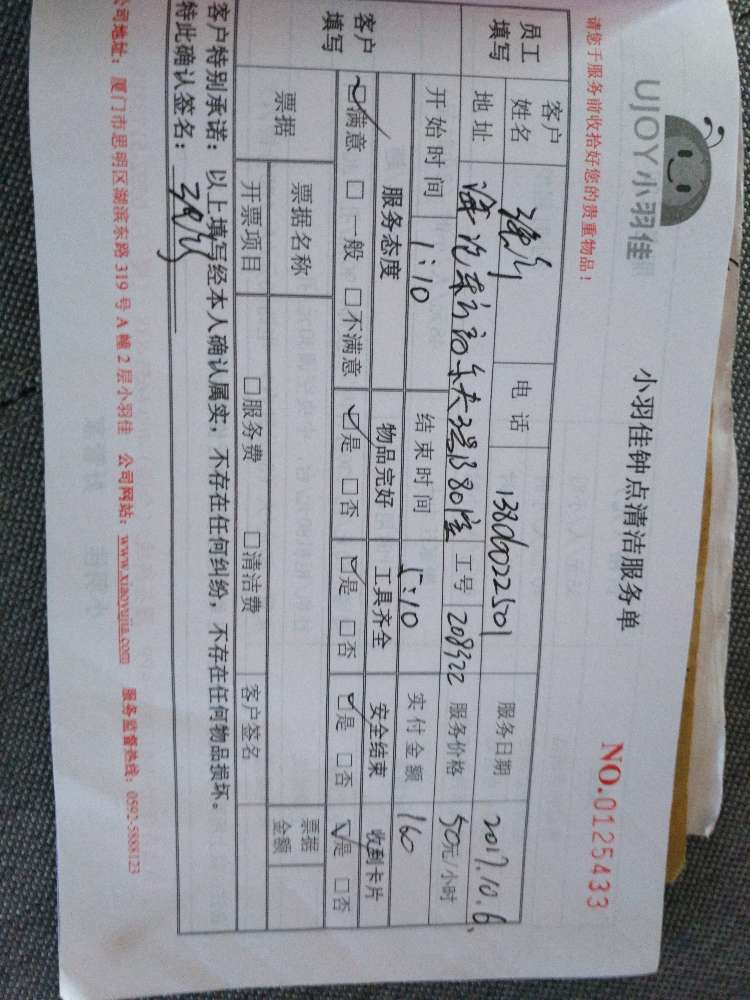 UJOY小羽佳
小羽佳钟点清洁服务单
请您于服务前收拾好您的贵重物品!
NO.0125433
员工填写 客户姓名 电话 13806022501 服务日期 2017.10.6
地址 工号 208922 服务价格 50元/小时
开始时间 1:10 结束时间 5:10 实付金额 160
客户填写 服务态度 物品完好 工具齐全 安全结束 收到卡片
☑满意 □一般 □不满意 ☑是 □否 ☑是 □否 ☑是 □否 ☑是 □否
票据 票据名称 票据金额
开票项目 □服务费 □清洁费 客户签名
客户特别承诺:以上填写经本人确认属实,不存在任何纠纷,不存在任何物品损坏。
特此确认签名:
公司地址:厦门市思明区湖滨东路319号A幢2层小羽佳 公司网站:www.xiaoyujia.com 服务监督热线:0592-5888123